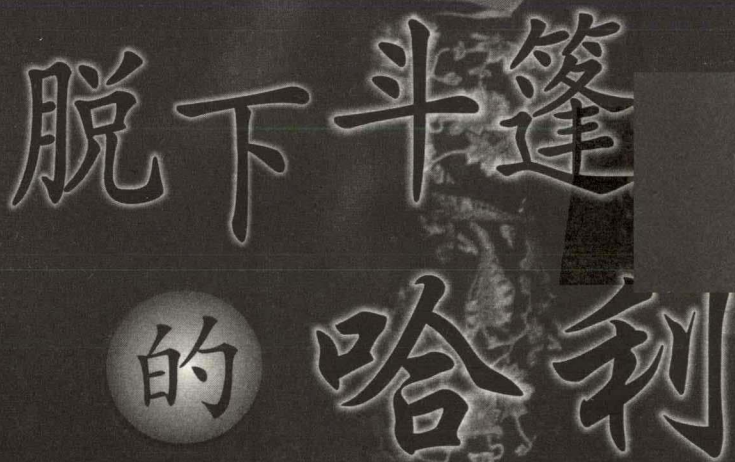 脱下斗篷
的哈利